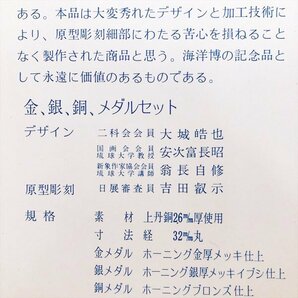 ある。本品は大変秀れたデザインと加工技術に
より、原型彫刻細部にわたる苦心を損ねること
なく製作された商品と思う。海洋博の記念品と
して永遠に価値のあるものである。
金、銀、銅、メダルセット
デザイン 二科会会員 大城皓也
国画会会員 琉球大学教授 安次富長昭
新象作家協会会員 琉球大学講師 翁長自修
原型彫刻 日展審査員 吉田叡示
規格 素材 上丹銅26m/m厚使用
寸法経 32m/m丸
金メダル ホーニング金厚メッキ仕上
銀メダル ホーニング銀厚メッキイブシ仕上
銅メダル ホーニングブロンズ仕上